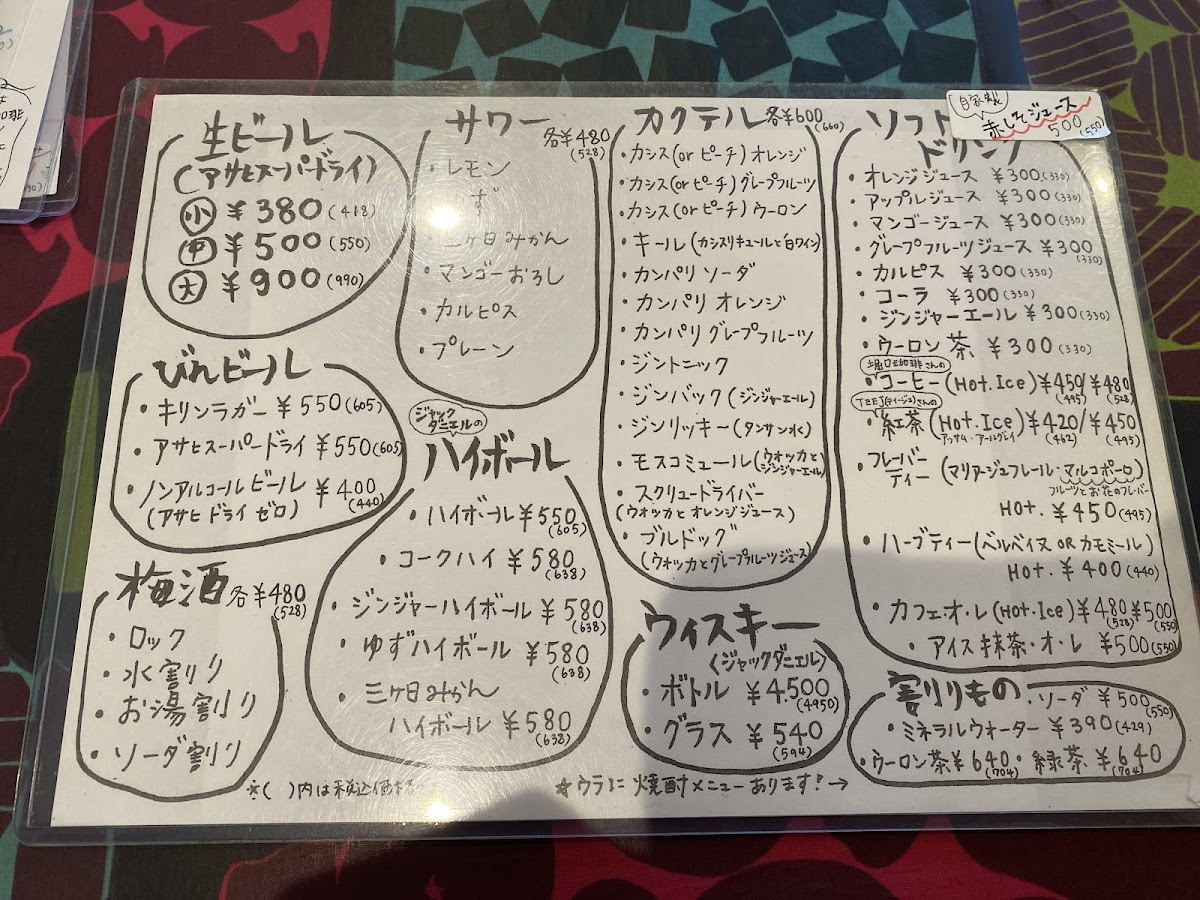 生ビール
(アサヒスーパードライ)
小 ¥380(418)
中 ¥500(550)
大 ¥900(990)
びんビール
・キリンラガー ¥550(605)
・アサヒスーパードライ ¥550(605)
・ノンアルコールビール ¥400(440)
(アサヒドライゼロ)
梅酒 各¥480(528)
・ロック
・水割り
・お湯割り
・ソーダ割り
サワー 各¥480(528)
・レモン
ず
・三ヶ日みかん
・マンゴーおろし
・カルピス
・プレーン
ジャックダニエルの
ハイボール
・ハイボール ¥550(605)
・コークハイ ¥580(638)
・ジンジャーハイボール ¥580(638)
・ゆずハイボール ¥580(638)
・三ヶ日みかん
ハイボール ¥580(638)
カクテル 各¥600(660)
・カシス(or ピーチ)オレンジ
・カシス(or ピーチ)グレープフルーツ
・カシス(or ピーチ)ウーロン
・キール(カシスリキュールと白ワイン)
・カンパリソーダ
・カンパリオレンジ
・カンパリグレープフルーツ
・ジントニック
・ジンバック(ジンジャーエール)
・ジンリッキー(タンサン水)
・モスコミュール(ウォッカとジンジャーエール)
・スクリュードライバー
(ウォッカとオレンジジュース)
・ブルドッグ
(ウォッカとグレープフルーツジュース)
ウィスキー
(ジャックダニエル)
・ボトル ¥4.500(4950)
・グラス ¥540(594)
自家製
赤しそジュース
500(550)
ソフト
ドリンク
・オレンジジュース ¥300(330)
・アップルジュース ¥300(330)
・マンゴージュース ¥300(330)
・グレープフルーツジュース ¥300(330)
・カルピス ¥300(330)
・コーラ ¥300(330)
・ジンジャーエール ¥300(330)
・ウーロン茶 ¥300(330)
堀口珈琲さんの
・コーヒー(Hot.Ice)¥450/¥480
(495) (528)
TEEJ(ティージュ)さんの
・紅茶(Hot.Ice)¥420/¥450
アッサム・アールグレイ (462) (495)
・フレーバーティー(マリアージュフレール・マルコポーロ)
フルーツとお花のフレーバー
HOT. ¥450(495)
・ハーブティー(ベルベイヌ OR カモミール)
HOT. ¥400(440)
・カフェ・オ・レ(HOT.Ice)¥480 ¥500
(528) (550)
・アイス抹茶・オ・レ ¥500(550)
割りもの ・ソーダ ¥500(550)
・ミネラルウォーター ¥390(429)
・ウーロン茶¥640(704)・緑茶 ¥640(704)
※( )内は税込価格
☆ウラに焼酎メニューあります!→